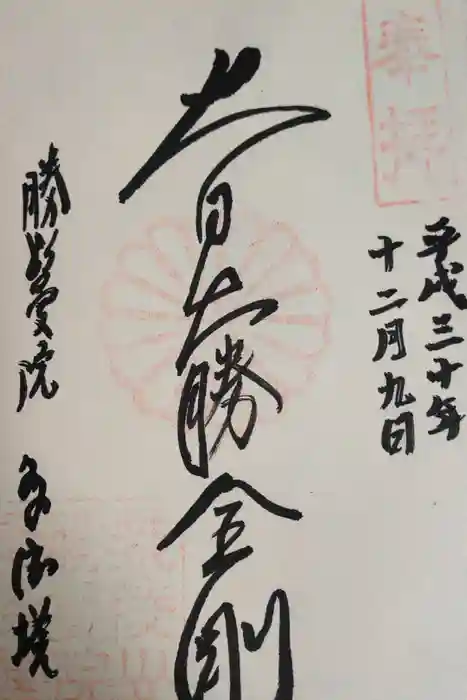 奉拝
平成三十年
十二月九日
大日大勝金剛
勝鬘院 多宝塔